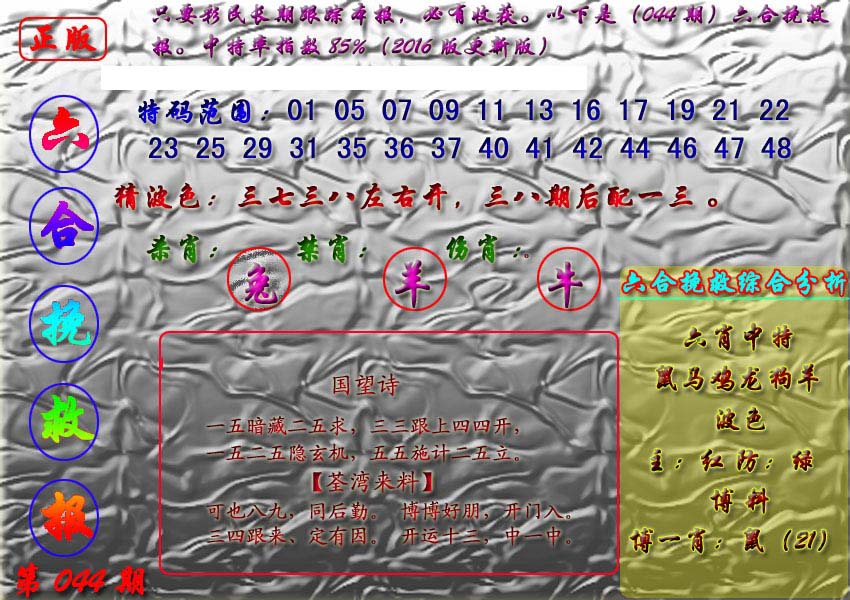 正版
只要彩民长期跟踪本报，必有收获。以下是（044期）六合挽救
报。中特率指数85%（2016版更新版）
六合挽救报
第044期
特码范围：01 05 07 09 11 13 16 17 19 21 22
23 25 29 31 35 36 37 40 41 42 44 46 47 48
猜波色：三七三八左右开，三八期后配一三。
杀肖：兔 禁肖：羊 伤肖：牛
国望诗
一五暗藏二五求，三三跟上四四开，
一五二五隐玄机，五五施计二五立。
【荃湾来料】
可也八九，同后勤。 博博好朋，开门入。
三四跟来、定有因。 开运十三，中一中。
六合挽救综合分析
六肖中特
鼠马鸡龙狗羊
波色
主：红防：绿
博料
博一肖：鼠（21）